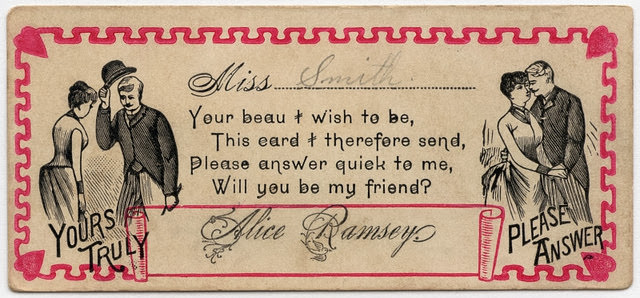 Miss Smith.
Your beau I wish to be,
This card I therefore send,
Please answer quick to me,
Will you be my friend?
Alice Ramsey.
YOURS TRULY
PLEASE ANSWER